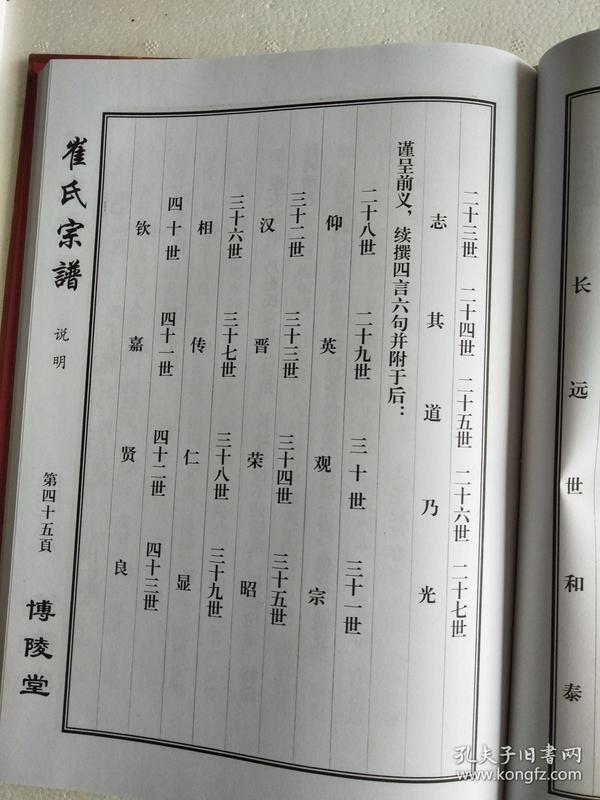 长远世和泰
二十三世 二十四世 二十五世 二十六世 二十七世
志其道乃光
谨呈前义，续撰四言六句并附于后：
二十八世 二十九世 三十世 三十一世
仰英观宗
三十二世 三十三世 三十四世 三十五世
汉晋荣昭
三十六世 三十七世 三十八世 三十九世
相传仁显
四十世 四十一世 四十二世 四十三世
钦嘉贤良
崔氏宗譜
说明
第四十五頁
博陵堂
孔夫子旧书网
www.kongfz.com